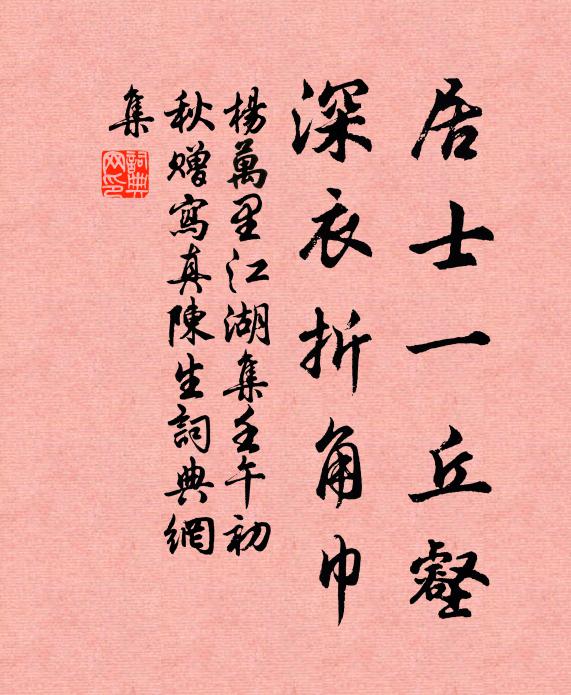 居士一丘壑
深衣折角巾
楊萬里江湖集壬午初
秋贈寫真陳生詞典網
集
詞典
网印